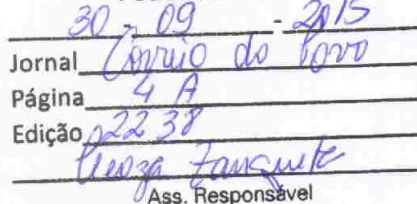 30 - 09 - 2015
Jornal Correio do Povo
Página 4 A
Edição 2238
Ass. Responsável